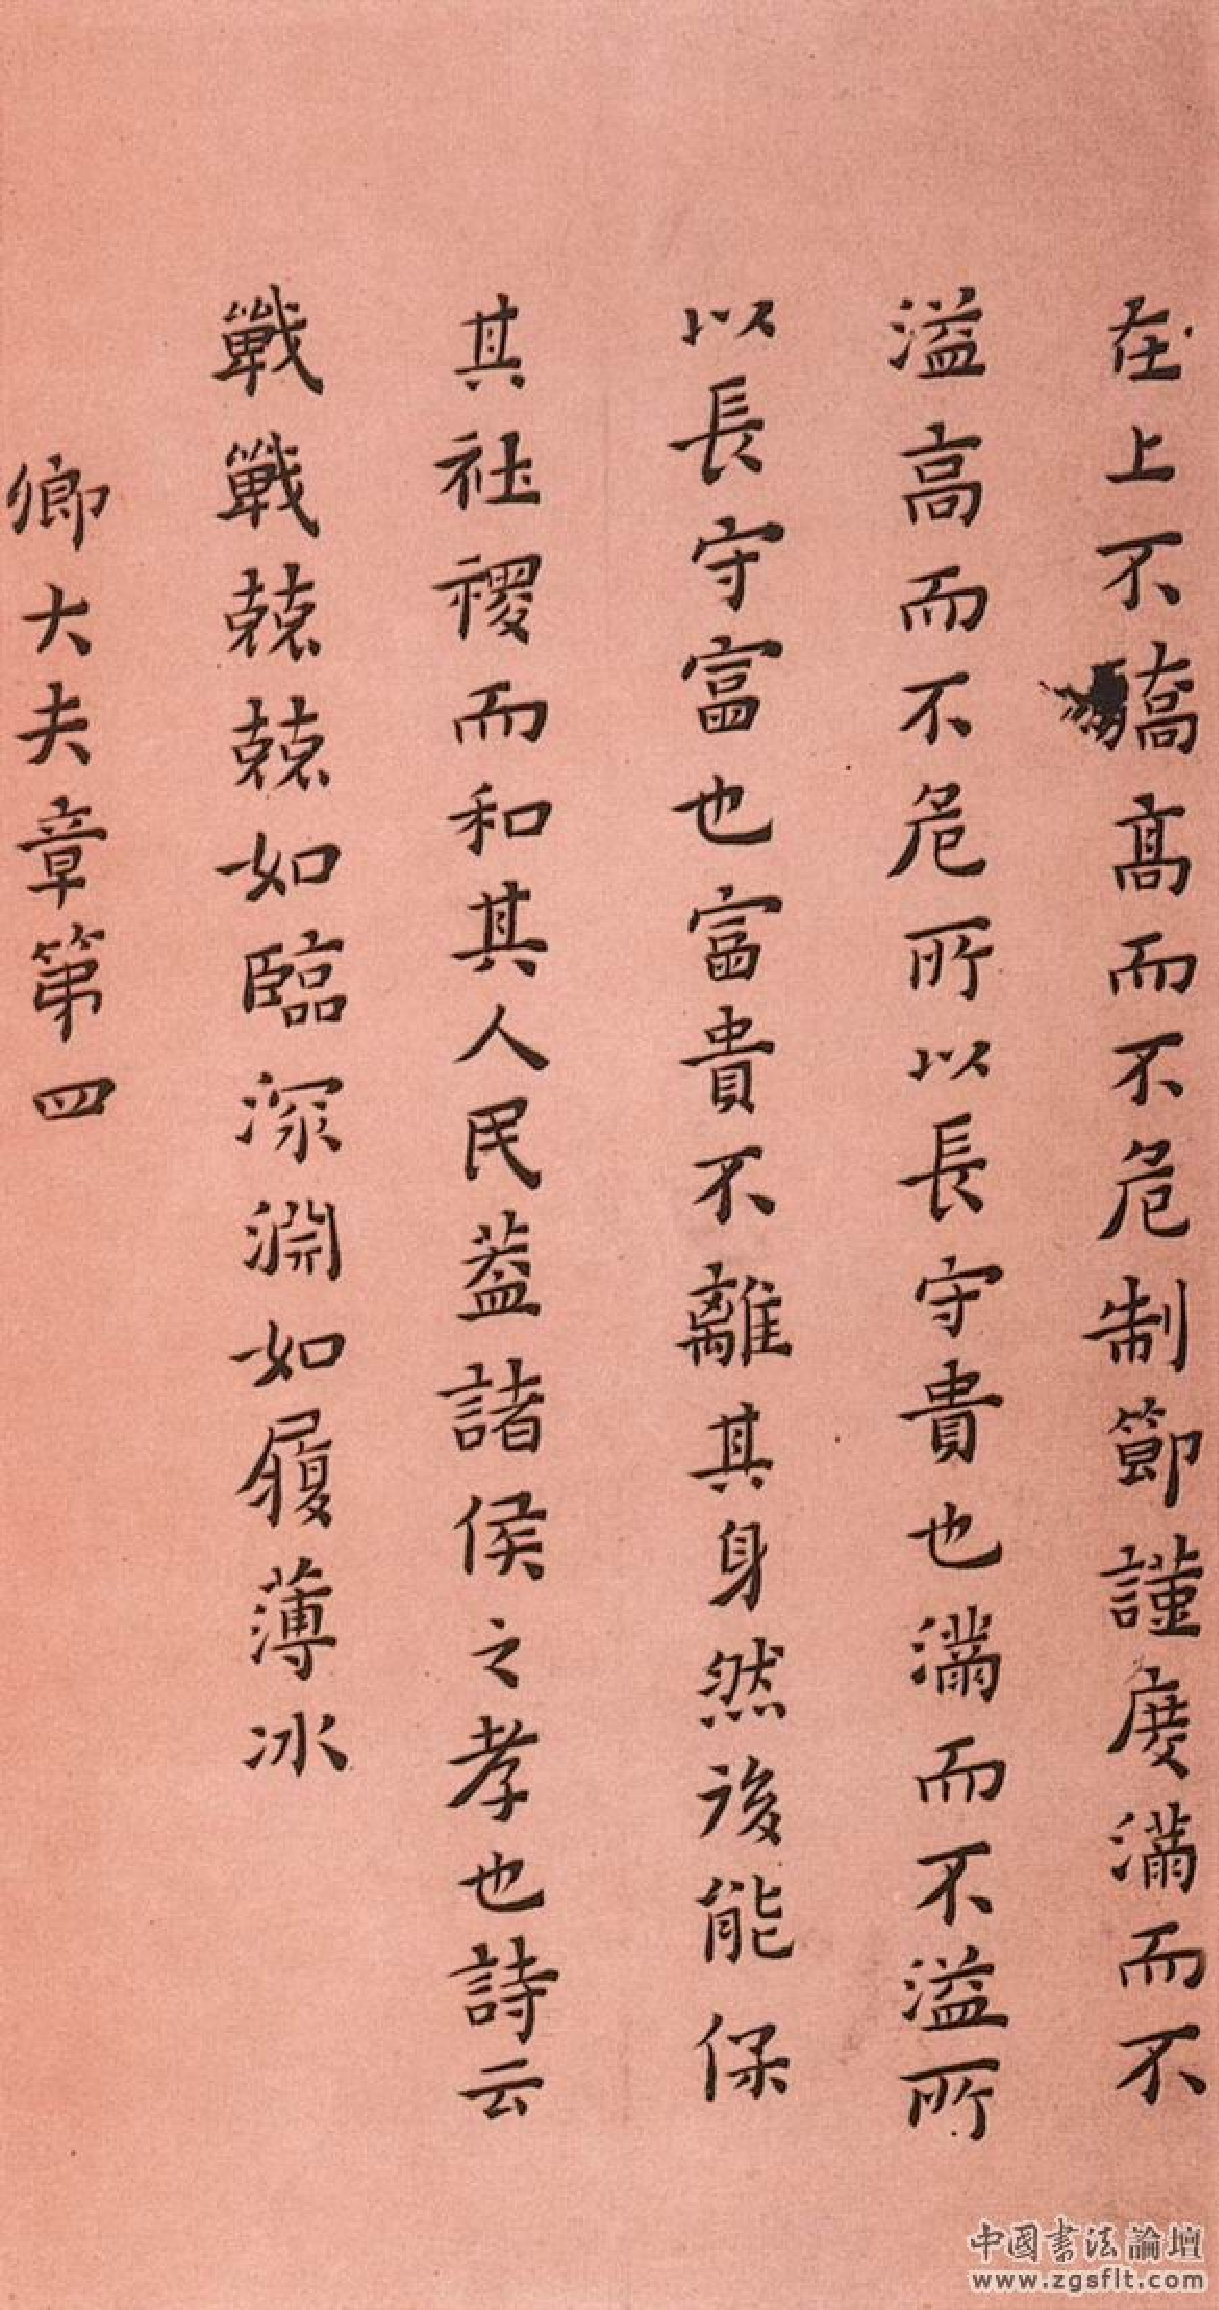 在上不驕高而不危制節謹度滿而不
溢高而不危所以長守貴也滿而不溢所
以長守富也富貴不離其身然後能保
其社稷而和其人民蓋諸侯之孝也詩云
戰戰兢兢如臨深淵如履薄冰
卿大夫章第四
中國書法論壇
www.zgsflt.com